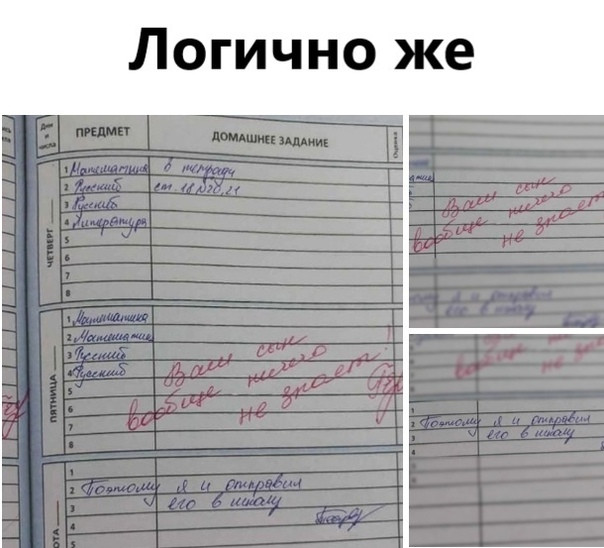 Логично же
Дни и числа
ПРЕДМЕТ
ДОМАШНЕЕ ЗАДАНИЕ
Оценка
ЧЕТВЕРГ
1 Математика в тетради
2 Русский ст. 18 №20,21
3 Русский
4 Литература
5
6
7
8
ПЯТНИЦА
1 Математика
2 Математика
3 Русский
4 Русский
5
6
7
8
Ваш сын
вообще ничего
не знает!
1
2 Поэтому я и отправил
3 его в школу
4
5
Ваш сын
вообще ничего
не знает
я и отправил
его в школу
вообще
не
1
2 Поэтому я и отправил
3 его в школу
4